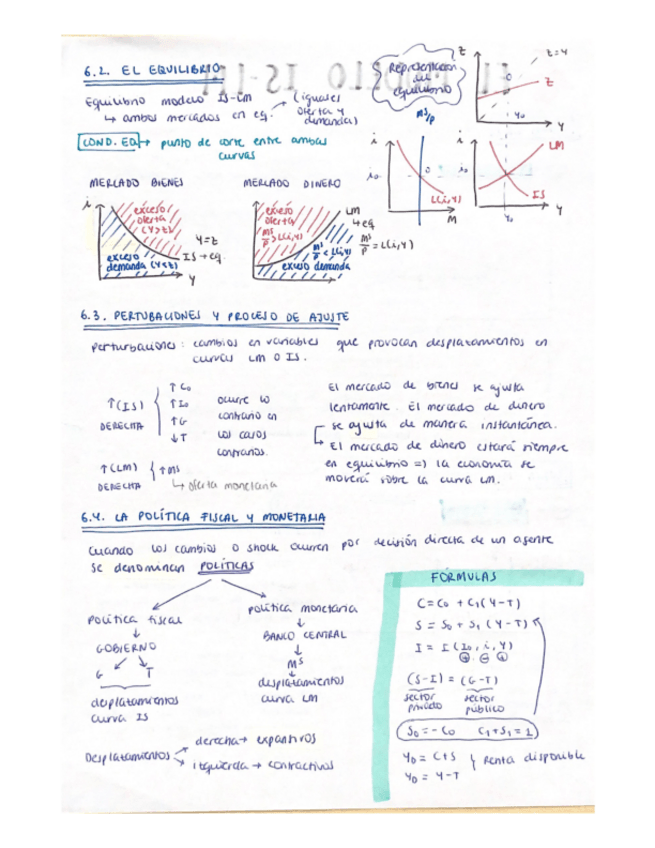 6.2. EL EQUILIBRIO
Equilibrio modelo IS-LM (iguales
↳ ambos mercados en eq. oferta y
demanda)
COND. EQ → punto de corte entre ambas
curvas
Representación
del
equilibrio
Z
Z=Y
Z
Y₀
Y
Mˢ/P
i
i₀
L(i,Y)
M
i
LM
i₀
IS
Y₀
Y
MERCADO BIENES
i
exceso
oferta
(Y>Z)
Y=Z
IS → eq.
exceso
demanda (Y<Z)
Y
MERCADO DINERO
exceso
oferta
Mˢ/P > L(i,Y)
LM
↳ eq
Mˢ/P = L(i,Y)
Mˢ/P < L(i,Y)
exceso demanda
6.3. PERTUBACIONES Y PROCESO DE AJUSTE
Perturbaciones: cambios en variables que provocan desplazamientos en
curvas LM o IS.
↑(IS)
DERECHA
↑C₀
↑I₀
↑G
↓T
ocurre lo
contrario en
los casos
contrarios.
↑(LM) { ↑Mˢ
DERECHA ↳ oferta monetaria
El mercado de bienes se ajusta
lentamente. El mercado de dinero
se ajusta de manera instantánea.
↳ El mercado de dinero estará siempre
en equilibrio => la economía se
moverá sobre la curva LM.
6.4. LA POLÍTICA FISCAL Y MONETARIA
Cuando los cambios o shock ocurren por decisión directa de un agente
se denominan POLÍTICAS
Política fiscal
↓
GOBIERNO
G T
desplazamientos
curva IS
política monetaria
↓
BANCO CENTRAL
↓
Mˢ
↓
desplazamientos
curva LM
Desplazamientos
derecha → expansivos
izquierda → contractivos
FÓRMULAS
C = C₀ + C₁(Y-T)
S = S₀ + S₁(Y-T)
I = I(I₀, i, Y)
⊕ ⊖ ⊕
(S-I) = (G-T)
sector sector
privado público
S₀ = -C₀ C₁+S₁ = 1
Y_D = C+S } Renta disponible
Y_D = Y-T